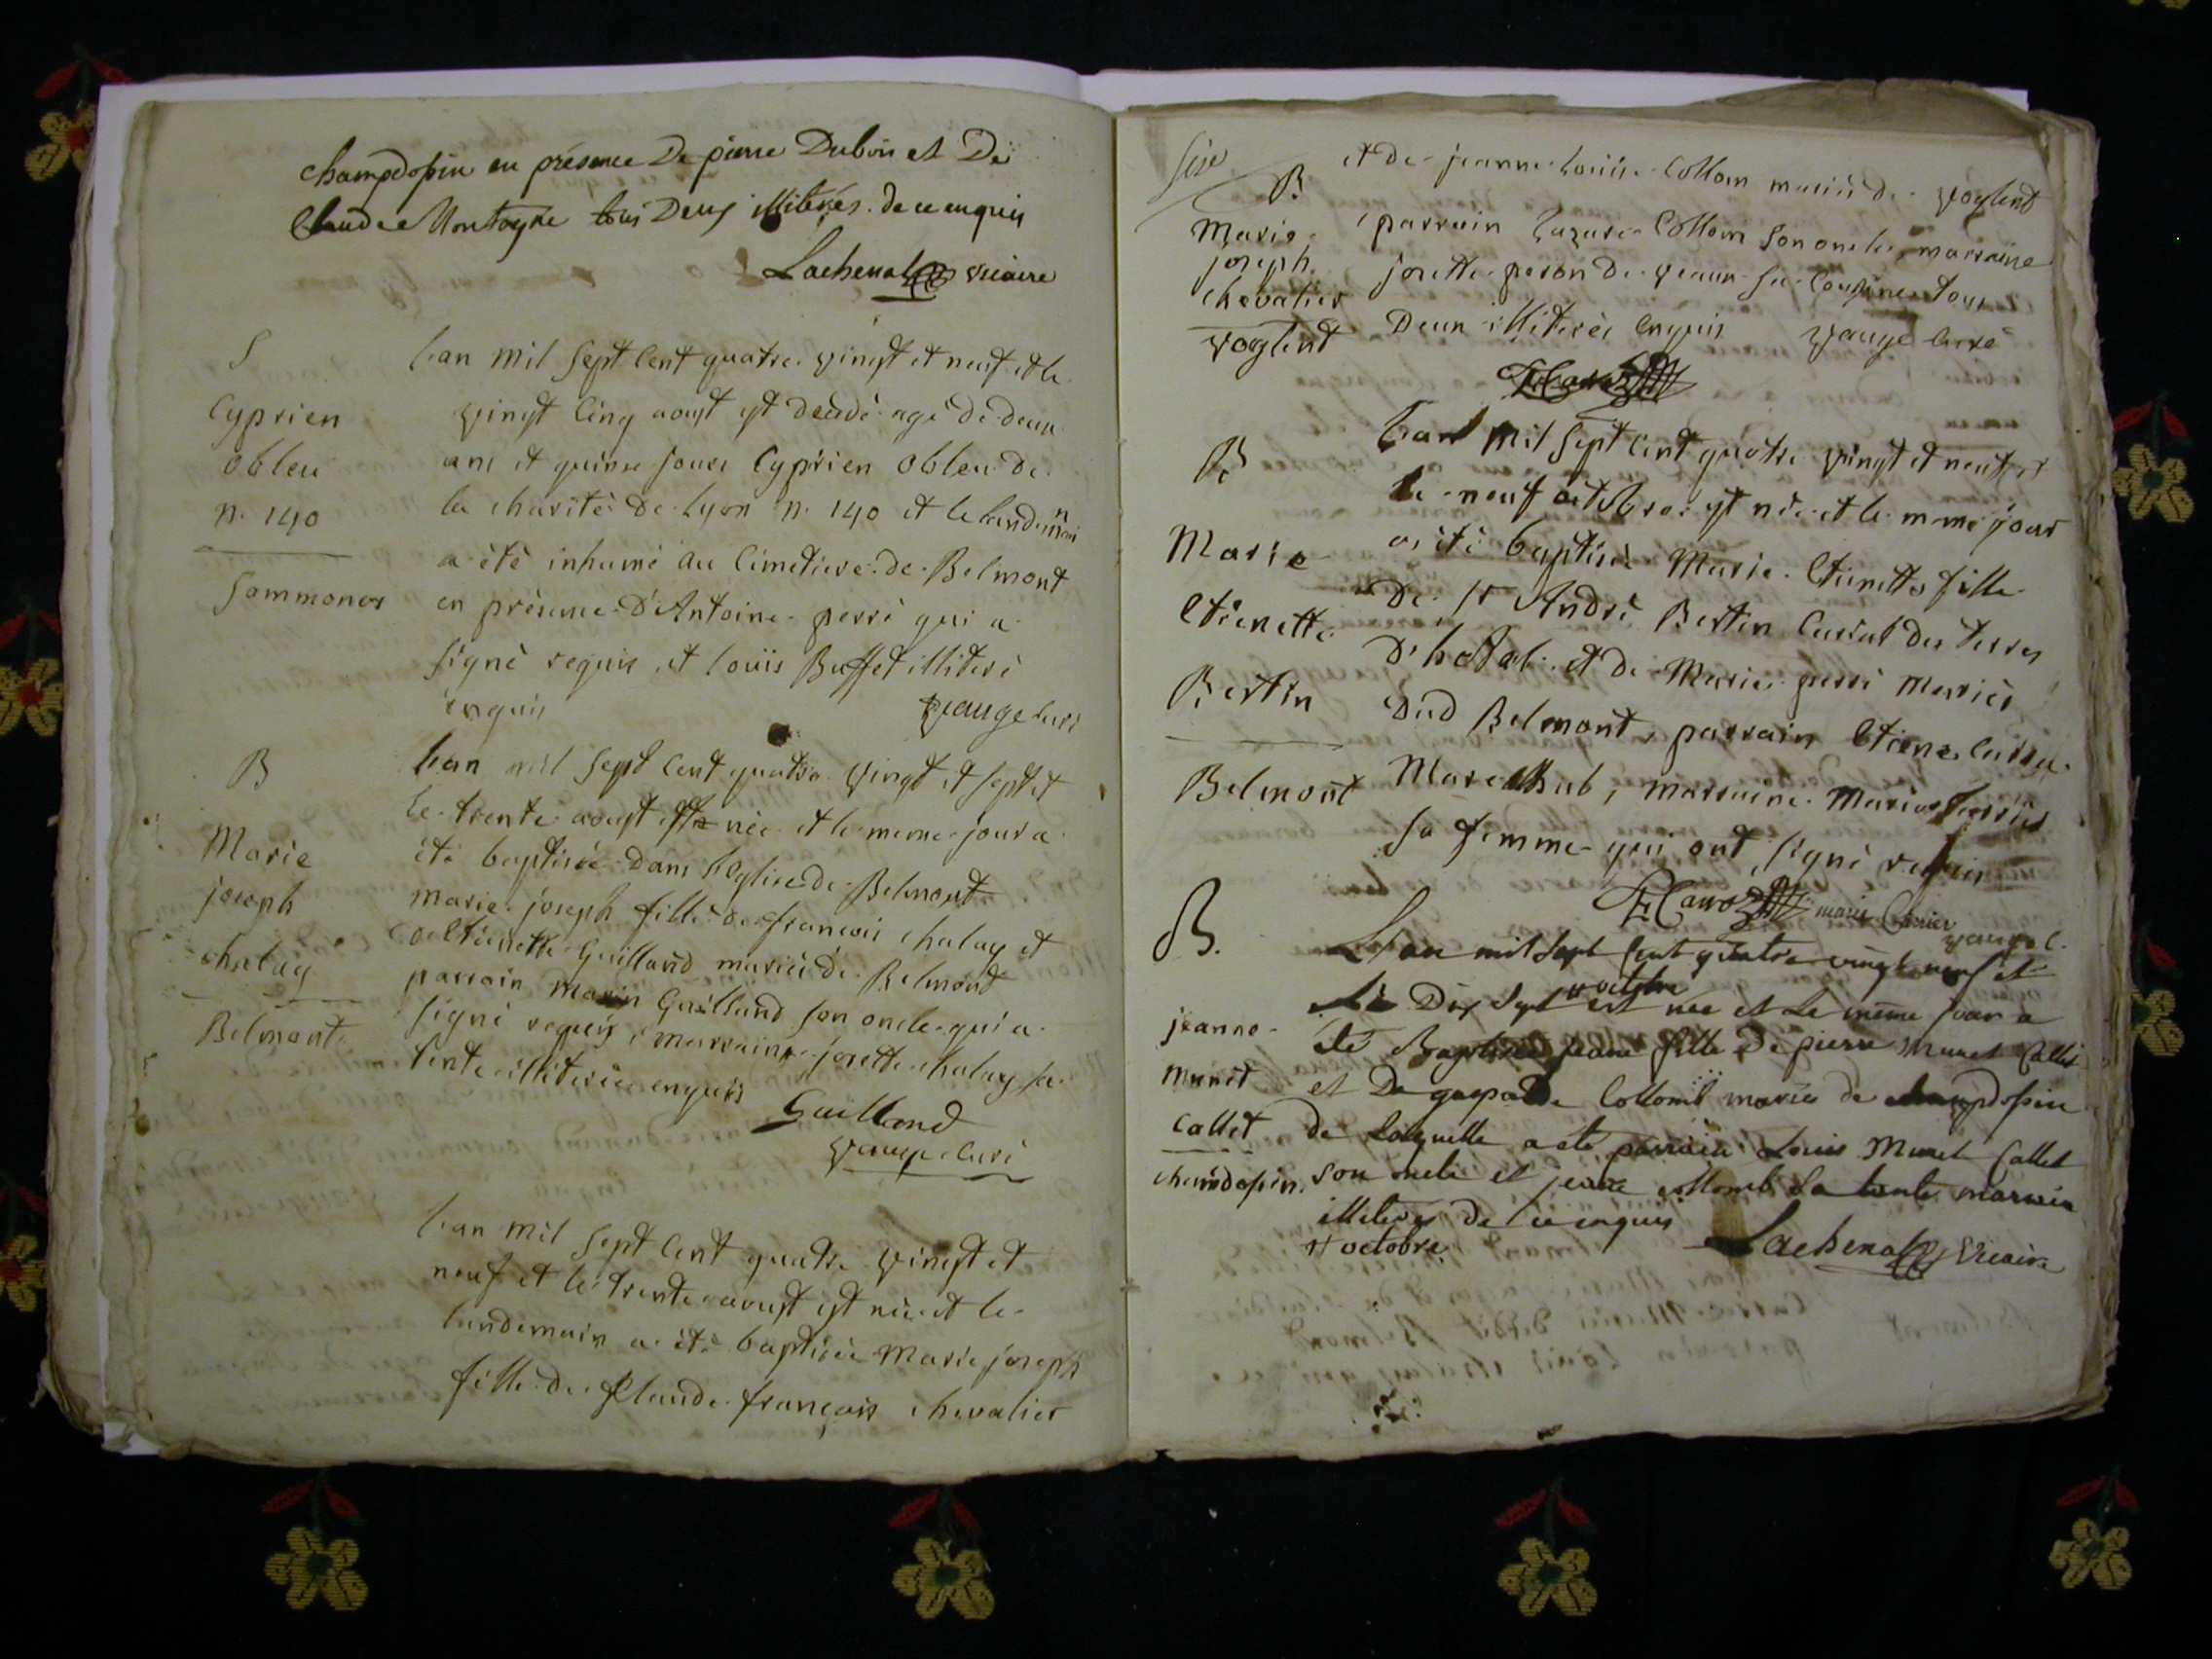 champdossin en présence De pierre Dubois et De
Claude Montagne tous Deux illiterés de ce enquis
Lachenal vicaire
S
Cyprien
obleu
n. 140
Sammoner
l'an mil sept cent quatre vingt et neuf et le
vingt cinq aoust est décédé agé de deux
ans et quinse jours Cyprien obleu de
la charité de Lyon n. 140 et le lendemain
a été inhumé au cimetiere de Belmont
en présence d'Antoine perré qui a
signé requis et louis Buffet illiteré
enquis
veauge curé
B
Marie
joseph
chalay
Belmont
l'an mil sept cent quatre vingt et sept et
le trente aoust née et le meme jour a
été baptisée dans l'eglise de Belmont
marie joseph fille de françois chalay et
d'etienette Guilland mariés de Belmont
parrain Marin Guilland son oncle qui a
signé requis, marraine josette chalay sa
tente illiterée enquis
Guilland
veauge curé
l'an mil sept cent quatre vingt et
neuf et le trente aoust est née et le
landemain a été baptisée Marie joseph
fille de Claude françois chevalier
six
B
Marie
joseph
chevalier
voglent
et de jeanne louise Collom mariés de voglent
parrain Lazare Collom son oncle, marraine
josette peron de veaux sa cousine tous
Deux illiterés enquis veauge curé
B
Marie
Etienette
Bertin
Belmont
l'an mil sept cent quatre vingt et neuf et
le neuf octobre est née et le meme jour
a été baptisée Marie Etienette fille
de Sr André Bertin Curial des terres
d'hotal et de Marie perré mariés
dud Belmont, parrain Etiene
Marechal, marraine Marie
sa femme qui ont signé requis
marie
veauge c.
B.
jeanne
muret
callet
champdossin
L'an mil sept cent quatre vingt neuf et
le Dix sept octobre est née et le même jour a
été Baptisée jeane fille De pierre Muret Callet
et De gasparde Collomb mariés de champdossin
de laquelle a été parrain Louis Muret Callet
son oncle et jeane collomb sa tante marraine
illiteres de ce enquis
octobre
Lachenal Vicaire